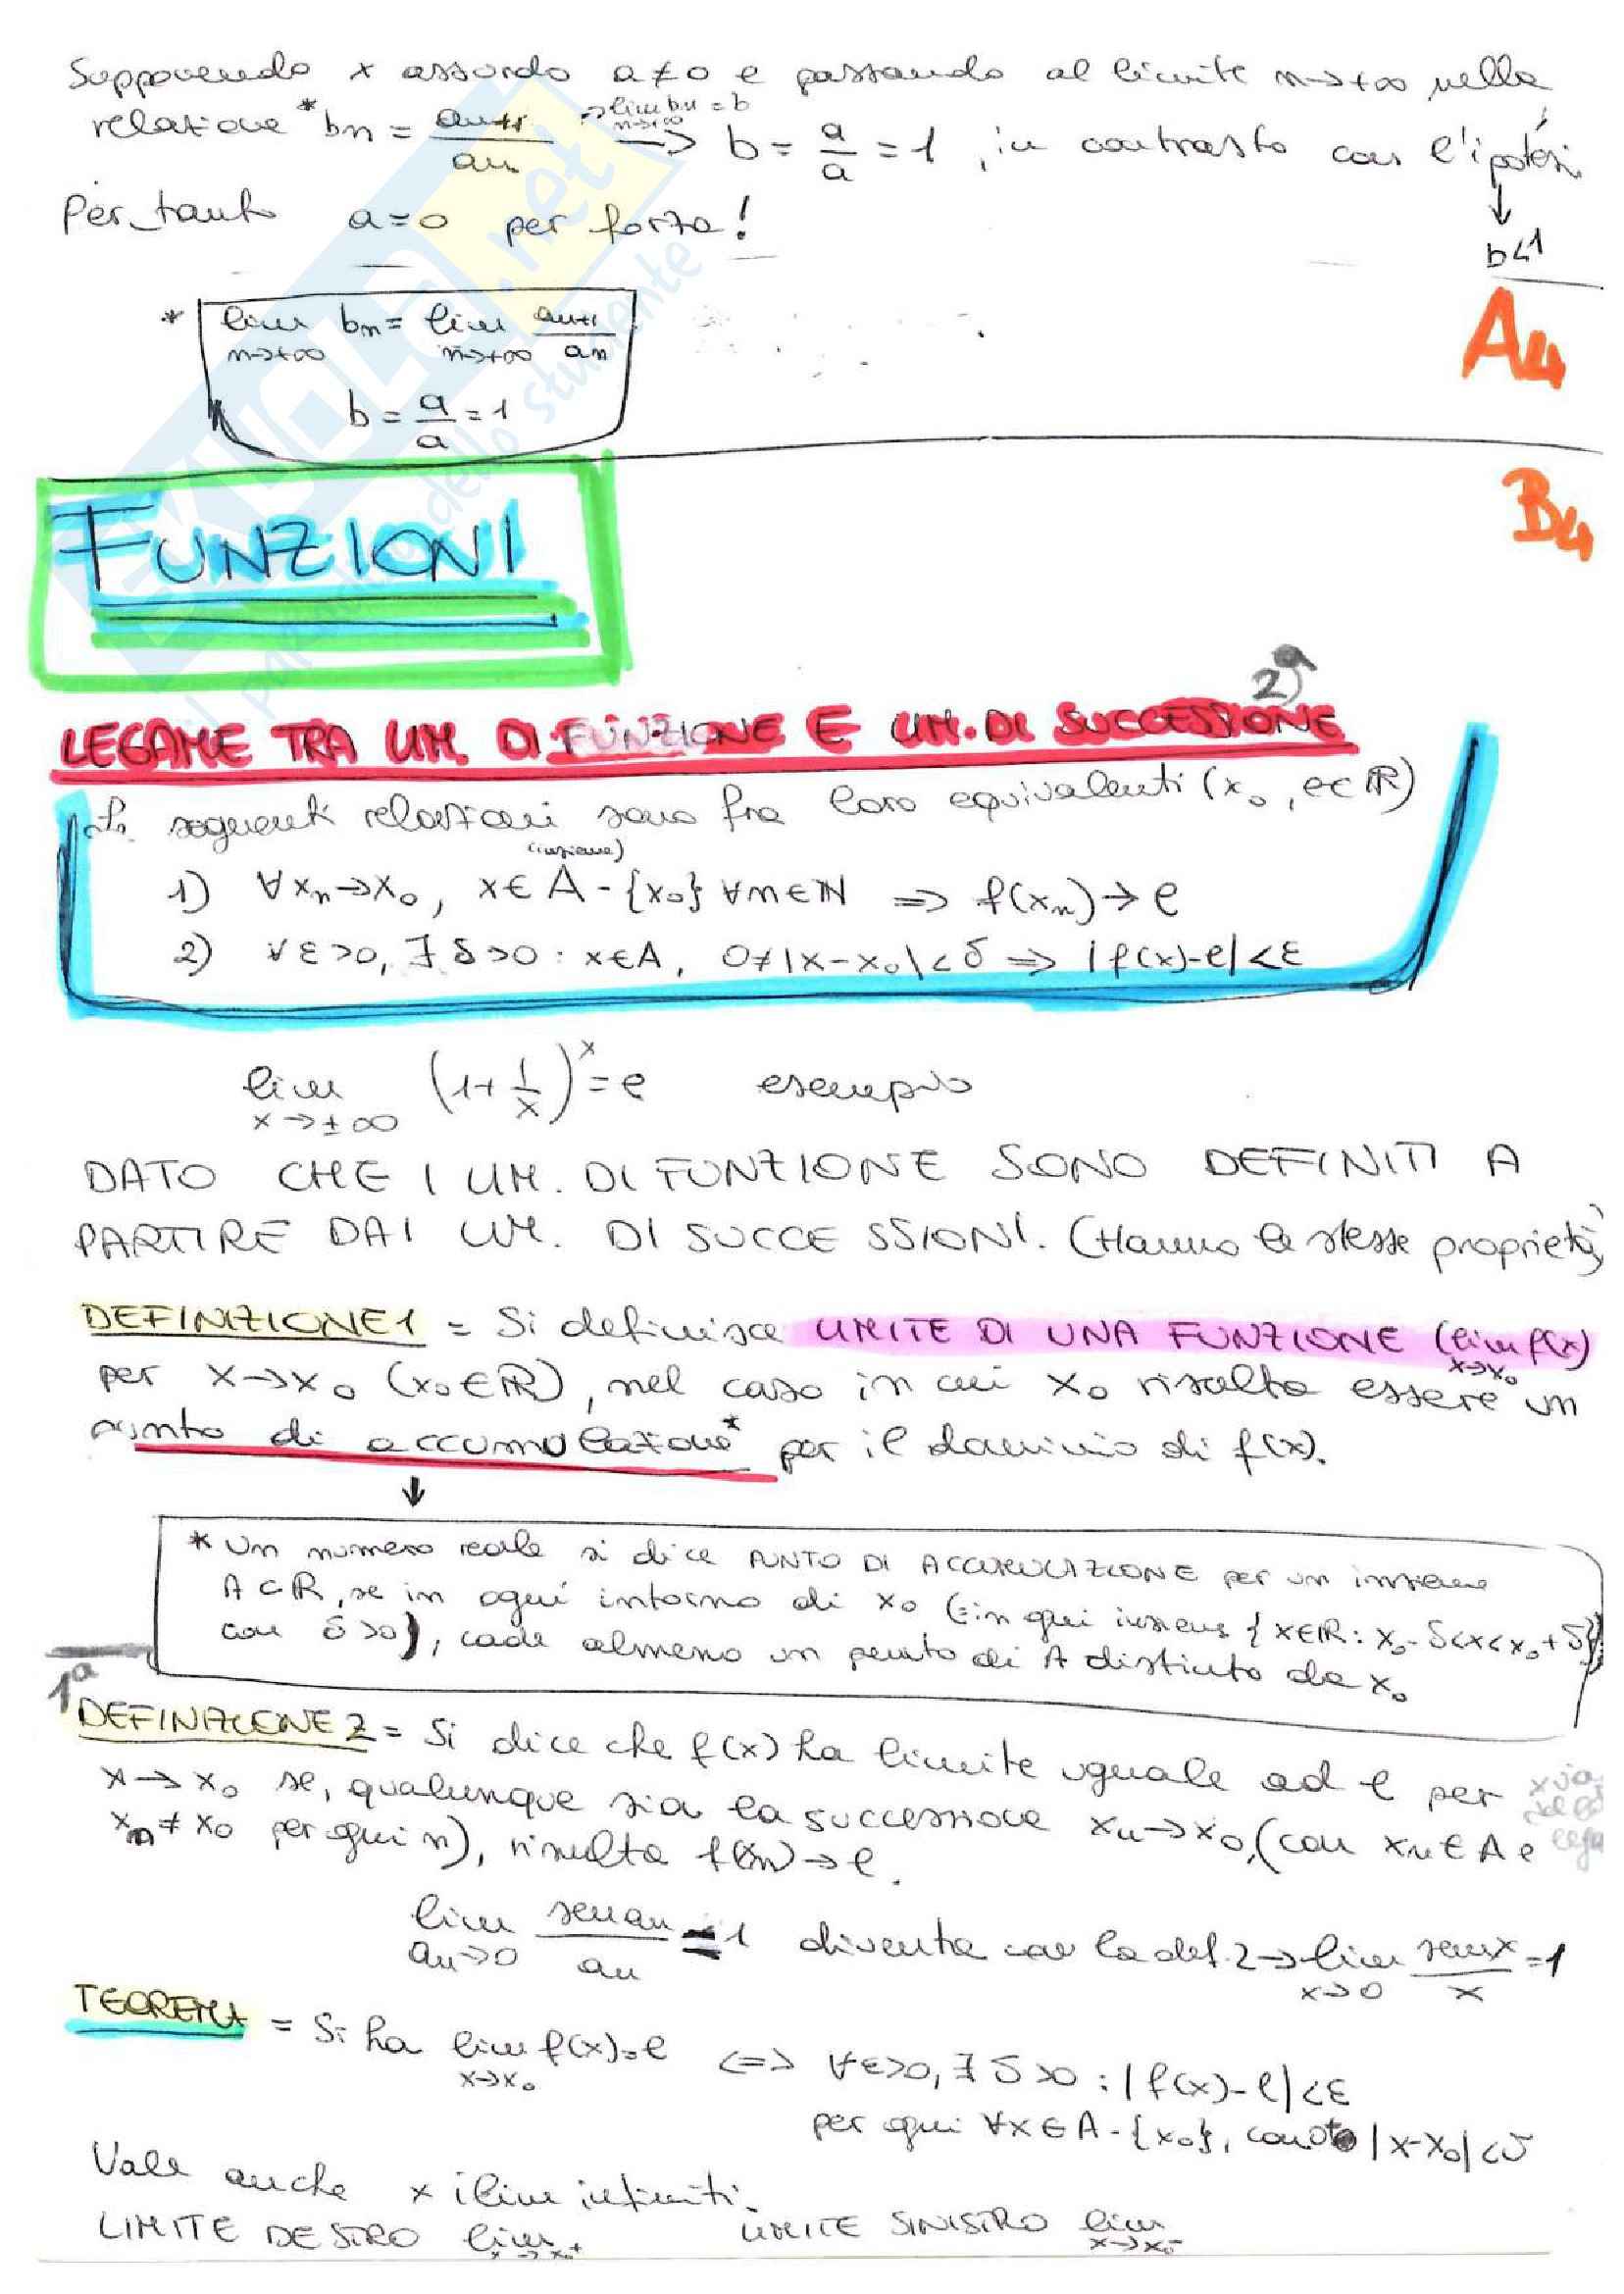 Supponendo x assurdo a≠0 e passando al limite n→+∞ nella
relazione * bn = an+1/an ⇒ lim bn = b n→+∞ → b = a/a = 1, in contrasto con l'ipotesi
Per tanto a=0 per forza! ↓
b<1
* lim n→+∞ bn = lim n→+∞ an+1/an
b = a/a = 1
A4
B4
FUNZIONI
2)a
LEGAME TRA LIM. DI FUNZIONE E LIM. DI SUCCESSIONE
Le seguenti relazioni sono fra loro equivalenti (x₀, ℓ∈ℝ)
(insieme)
1) ∀xn→x₀, x∈A-{x₀} ∀n∈ℕ ⇒ f(xn)→ℓ
2) ∀ε>0, ∃δ>0 : x∈A, 0≠|x-x₀|<δ ⇒ |f(x)-ℓ|<ε
lim x→±∞ (1+1/x)^x = e esempio
DATO CHE I LIM. DI FUNZIONE SONO DEFINITI A
PARTIRE DAI LIM. DI SUCCESSIONI. (Hanno le stesse proprietà)
DEFINIZIONE 1 = Si definisce LIMITE DI UNA FUNZIONE (lim x→x₀ f(x))
per x→x₀ (x₀∈ℝ), nel caso in cui x₀ risulta essere un
punto di accumulazione* per il dominio di f(x).
↓
* Un numero reale si dice PUNTO DI ACCUMULAZIONE per un insieme
A⊂ℝ, se in ogni intorno di x₀ (=in ogni insieme {x∈ℝ: x₀-δ<x<x₀+δ}
con δ>0), cade almeno un punto di A distinto da x₀
1a
DEFINIZIONE 2 = Si dice che f(x) ha limite uguale ad ℓ per
x→x₀ se, qualunque sia la successione xn→x₀, (con xn∈A e
xn≠x₀ per ogni n), risulta f(xn)→ℓ.
lim an→0 sen an/an = 1 diventa con la def. 2→ lim x→0 sen x/x = 1
TEOREMA = Si ha lim x→x₀ f(x)=ℓ ⇔ ∀ε>0, ∃δ>0 : |f(x)-ℓ|<ε
per ogni ∀x∈A-{x₀}, con 0≠|x-x₀|<δ
Vale anche x i lim infiniti.
LIMITE DESTRO lim x→x₀⁺ LIMITE SINISTRO lim x→x₀⁻